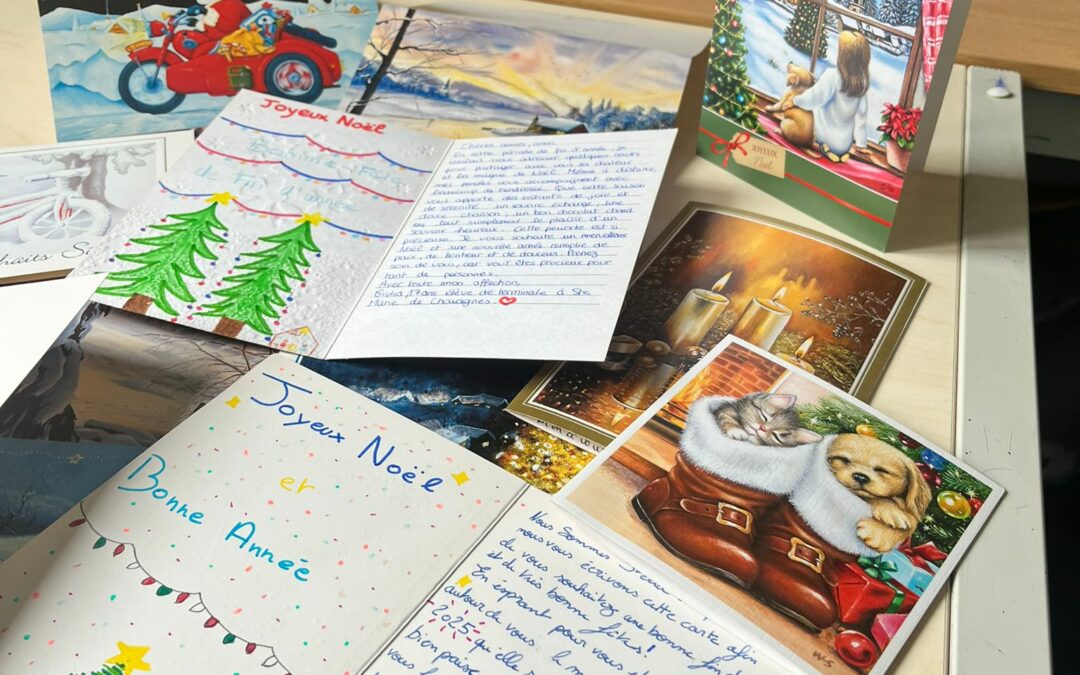 Joyeux Noël
Chères année, amie
En cette période de fin d'année, je
voulais vous adresser quelques mots
pour partager avec vous la chaleur
et la magie de Noël. Même à distance,
mes pensées vous accompagnent avec
beaucoup de tendresse. Que cette saison
vous apporte des instants de joie et
de sérénité : un sourire échangé, une
douce chanson, un bon chocolat chaud
ou tout simplement le plaisir d'un
souvenir heureux. Cette période est si
précieuse. Je vous souhaite un merveilleux
Noël et une nouvelle année remplie de
paix, de bonheur et de douceur. Prenez
soin de vous, car vous êtes précieux pour
tant de personnes.
Avec toute mon affection,
Giulia, 17 ans élève de terminale à Ste
Marie de Chavagnes.
JOYEUX
Noël
Joyeux Noël
et
Bonne Année
Vous
nous vous écrivons cette carte afin
de vous souhaitez une bonne fin
et de très bonne fêtes!
En espérant pour vous
autour de vous
2025 qu'elle
bien
vous
W-S